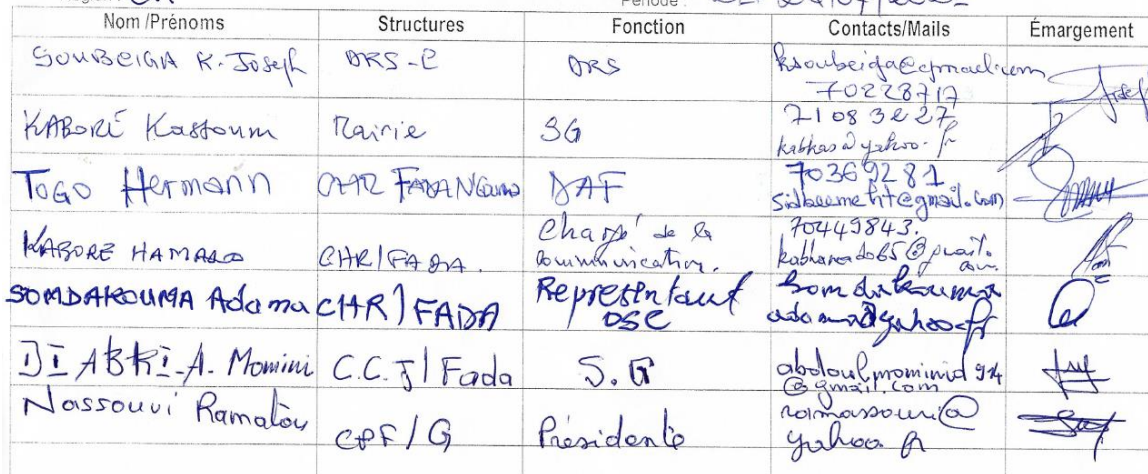 Nom /Prénoms Structures Fonction Contacts/Mails Émargement
SOUBEIGA K. Joseph DRS-E DRS ksoubeiga@gmail.com
70228717
KABORÉ Kassoum Mairie SG 71083227
kabkas@yahoo.fr
TOGO Hermann CHR FADA NGourma DAF 70369281
@gmail.com
KABORE HAMADO CHR/FADA. Chargé de la communication. 70449843.
kabhamado65@gmail.com
SOMDAKOUMA Adama CHR/FADA Représentant OSC somdakouma
adama@yahoo.fr
DIABRI-A. Momini C.C.J/Fada S.G abdoulmominid94
@gmail.com
Nassouri Ramatou CPF/G Présidente ramassouri@
yahoo.fr